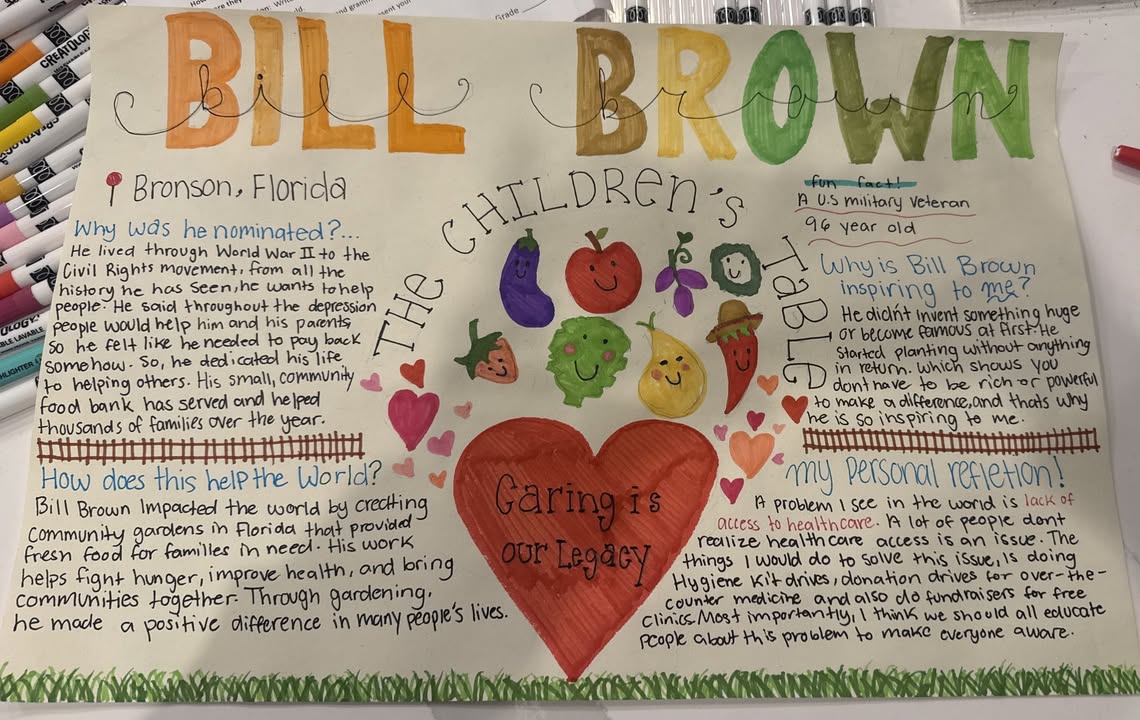 BILL BROWN
bill brown
Bronson, Florida
Why was he nominated?...
He lived through World War II to the
Civil Rights movement, from all the
history he has seen, he wants to help
people. He said throughout the depression
people would help him and his parents,
so he felt like he needed to pay back
somehow. So, he dedicated his life
to helping others. His small, community
food bank has served and helped
thousands of families over the year.
How does this help the World?
Bill Brown Impacted the world by creating
community gardens in Florida that provided
fresh food for families in need. His work
helps fight hunger, improve health, and bring
communities together. Through gardening,
he made a positive difference in many people's lives.
THE CHILDREN'S TABLE
Caring is
our Legacy
fun fact!
A U.S military veteran
96 year old
Why is Bill Brown
inspiring to me?
He didn't invent something huge
or become famous at first. He
started planting without anything
in return. Which shows you
dont have to be rich or powerful
to make a difference, and thats why
he is so inspiring to me.
My Personal refletion!
A problem I see in the world is lack of
access to healthcare. A lot of people dont
realize healthcare access is an issue. The
things I would do to solve this issue, Is doing
Hygiene kit drives, donation drives for over-the-
counter medicine and also do fundraisers for free
clinics. Most importantly, I think we should all educate
people about this problem to make everyone aware.
Grade
CREATOLOG